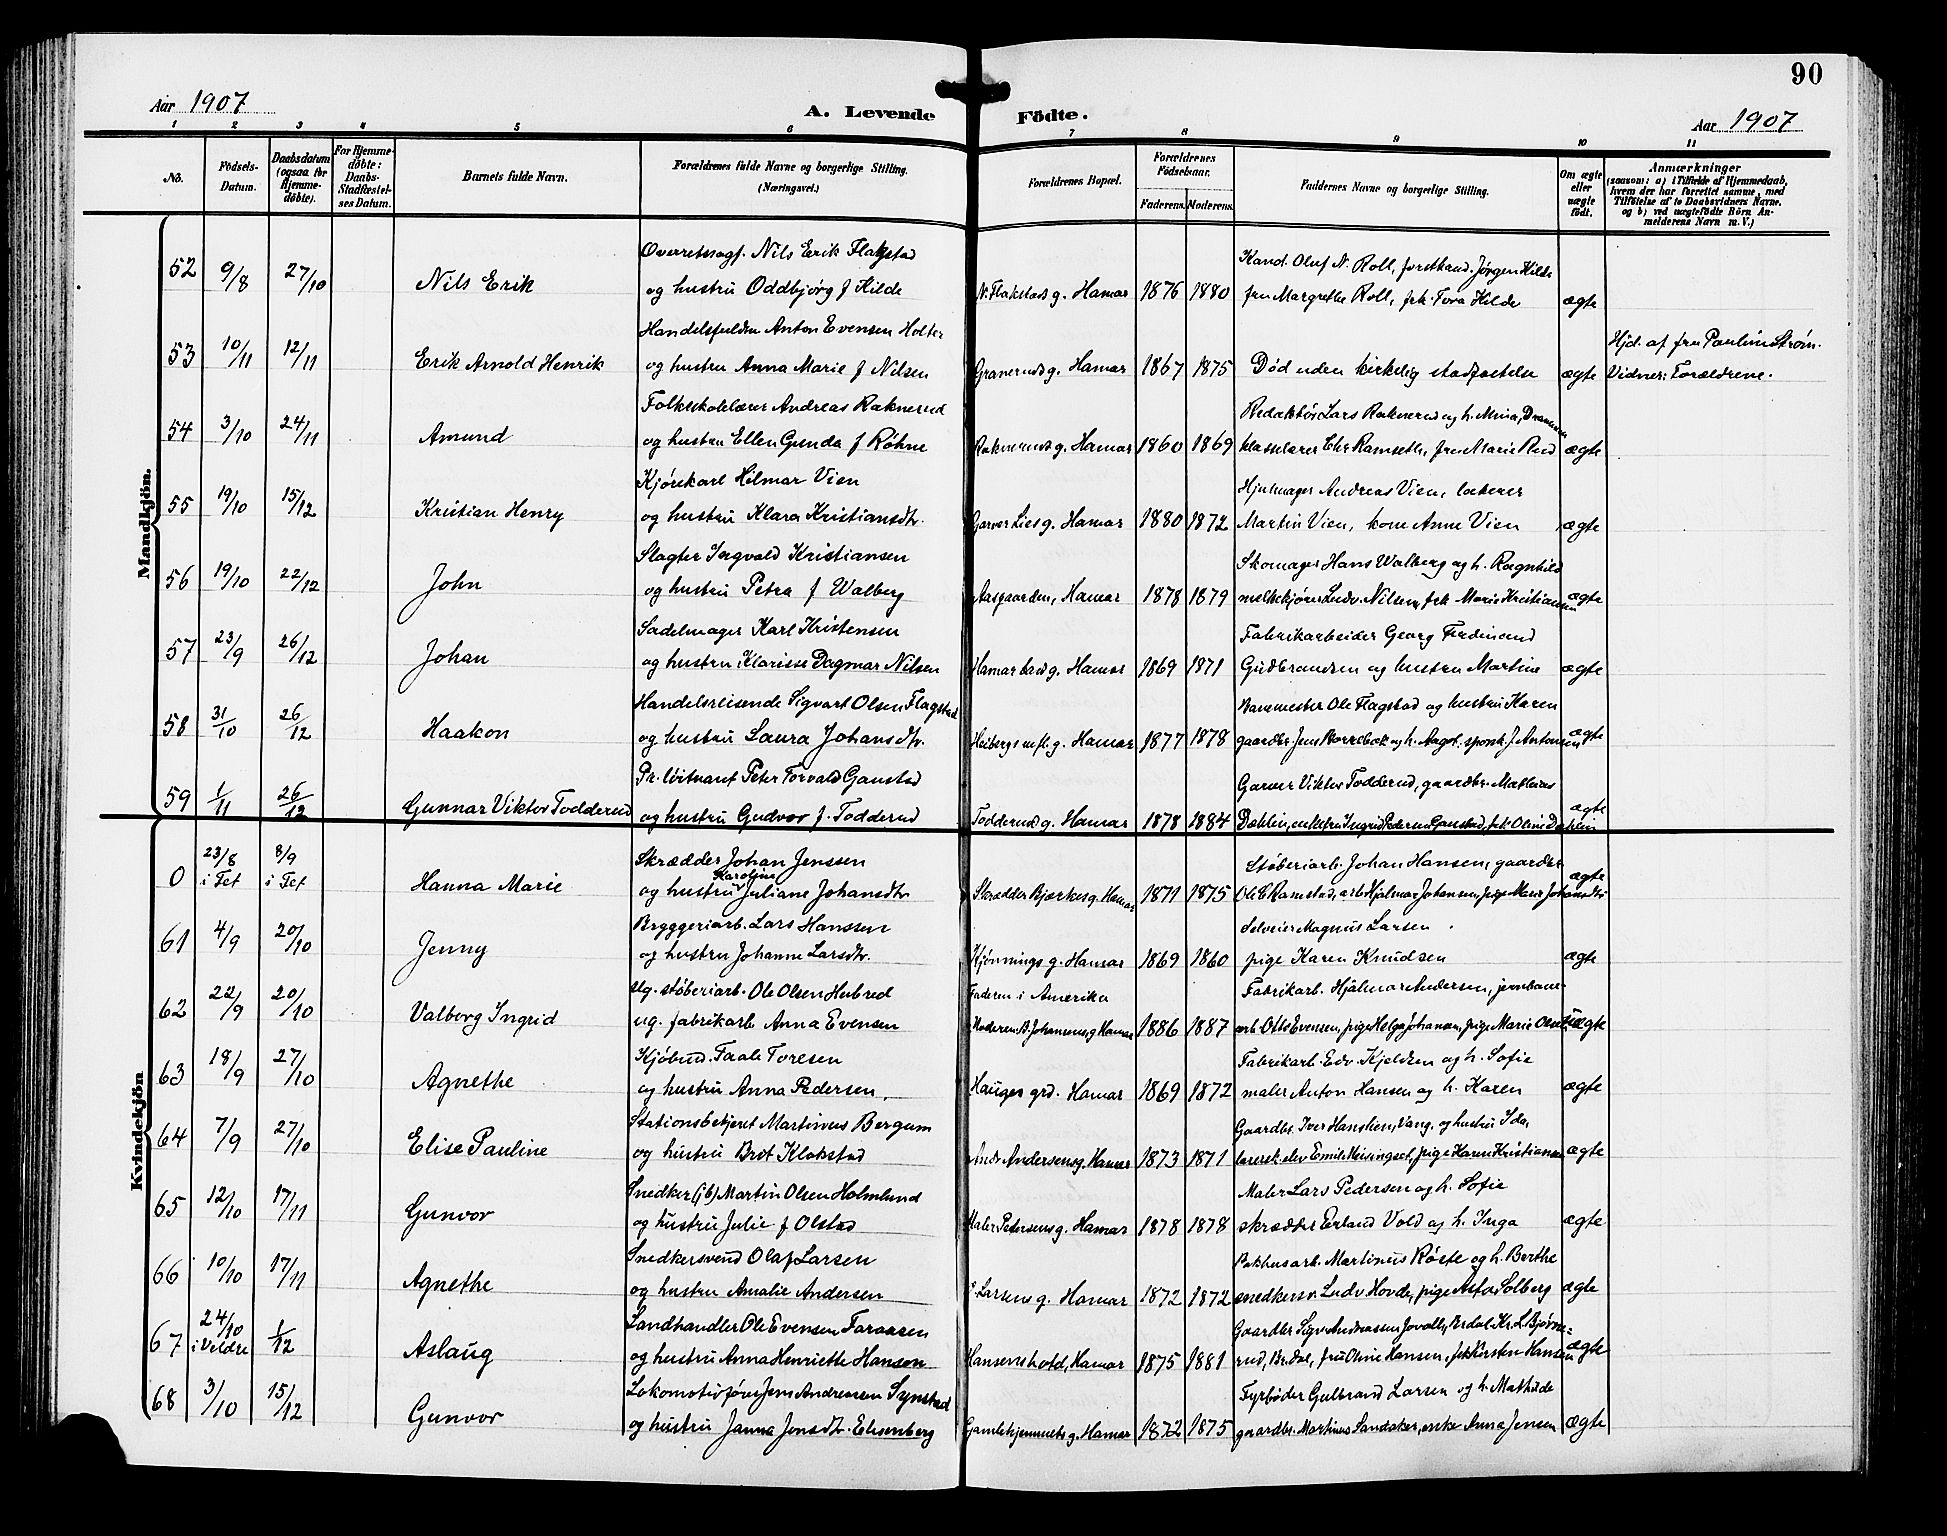 90
Aar 1907
A. Levende Födte.
Aar 1907
1 2 3 4 5 6 7 8 9 10 11
No.
Födsels-Datum.
Daabsdatum (ogsaa for Hjemmedöbte).
For Hjemmedöbte: Daabs-Stadfæstelses Datum.
Barnets fulde Navn.
Forældrenes fulde Navne og borgerlige Stilling. (Næringsvei.)
Forældrenes Bopæl.
Forældrenes Födselsaar.
Faderens. Moderens.
Faddernes Navne og borgerlige Stilling.
Om ægte eller uægte födt.
Anmærkninger
(saasom: a) i Tilfælde af Hjemmedaab, hvem der har forrettet samme, med Tilföielse af to Daabsvidners Navne. og b) ved uægtefödte Börn Anmelderens Navn m. V.)
Mandkjön.
52 9/8 27/10 Nils Erik Overretssagf. Nils Erik Flakstad
og hustru Oddbjørg f Hilde N. Flakstads g. Hamar 1876 1880 Kand. Oluf N. Roll, forstkand. Jørgen Hilde
fru Margrethe Roll, frk. Tora Hilde ægte
53 10/11 12/11 Erik Arnold Henrik Handelsfuldm Anton Evensen Holter
og hustru Anna Marie f Nilsen Graneruds g. Hamar 1867 1875 Død uden kirkelig stadfæstelse ægte
Hjd. af fru Pauline Strøm.
Vidner: Forældrene.
54 3/10 24/11 Amund Folkeskolelærer Andreas Raknerud
og hustru Ellen Gunda f Røhne Rakneruds g. Hamar 1860 1869 Redaktør Lars Raknerud og h. Mina, Drammen
klasselærer Chr Ramseth, fru Marie Rud ægte
55 19/10 15/12 Kristian Henry Kjørekarl Hilmar Vien
og hustru Klara Kristiansdtr. Garver Lies g. Hamar 1880 1872 Hjulmager Andreas Vien, lakerer
Martin Vien, kone Anne Vien ægte
56 19/10 22/12 John Slagter Ingvald Kristiansen
og hustru Petra f Walberg Aasgaarden, Hamar 1878 1879 Skomager Hans Walberg og h. Ragnhild
melkekjører Ludv. Nilsen, frk Marie Kristiansen ægte
57 23/9 26/12 Johan Sadelmager Karl Kristensen
og hustru Klarisse Dagmar Nilsen Hamar bads g. Hamar 1869 1871 Fabrikarbeider Georg Ferdinand
Gudbrandsen og hustru Martine ægte
58 31/10 26/12 Haakon Handelsreisende Sigvart Olsen Flagstad
og hustru Laura Johansdtr. g. Hamar 1877 1878 Banemester Ole Flagstad og hustru Karen
gaardbr Jens og h. Aagot. J. Antonsen ægte
59 1/11 26/12 Gunnar Viktor Todderud Pr. løitnant Peter Torvald Ganstad
og hustru Gudvor f. Todderud Todderuds g. Hamar 1878 1884 Garver Viktor Todderud, gaardbr. Mathias
Dæhlin, enkefru Ingrid Pedersen Ganstad, frk Oline Dæhlin ægte
Kvindekjön
0 23/8 i Fet 8/9 i Fet Hanna Marie Skrædder Johan Jenssen
Karoline
og hustru Juliane Johansdtr. Skrædder Bjerkes g. Hamar 1871 1875 Støberiarb. Johan Hansen, gaardbr
Ole E Ramstad, arb Hjalmar Johansen, pige Marie Johansdtr. ægte
61 4/9 20/10 Jenny Bryggeriarb. Lars Hanssen
og hustru Johanne Larsdtr. Kjønnings g. Hamar 1869 1860 Selveier Magnus Larsen
pige Karen Knudsen ægte
62 22/9 20/10 Valborg Ingrid Ug. støberiarb. Ole Olsen
ug. fabrikarb Anna Evensen Faderen i Amerika
Moderen B. Johansens g Hamar 1886 1887 Fabrikarb. Hjalmar Andersen, jernbane-
arb Otto Evensen, pige Helga Johansen, pige Marie Olsen uægte
63 18/9 27/10 Agnethe Kjøbmd. Faale Toresen
og hustru Anna Pedersen Hauges grd. Hamar 1869 1872 Fabrikarb. Edv. Kjeldsen og h. Sofie
maler Anton Hansen og h. Karen ægte
64 7/9 27/10 Elise Pauline Stationsbetjent Martinius Bergum
og hustru Brot Klokstad Andr. Andersens g. Hamar 1873 1871 Gaardbr. Iver Hansken, Vang, og hustru Ida,
lærersk. elev Emil Meisingset, pige Karen Kristiansen ægte
65 12/10 17/11 Gunvor Snedker (jb) Martin Olsen Holmlund
og hustru Julie f Olstad Maler Pedersens g. Hamar 1878 1878 Maler Lars Pedersen og h. Sofie
skrædder Erland Vold og h. Inga ægte
66 10/10 17/11 Agnethe Snedkersvend Olaf Larsen
og hustru Amalie Andersen Larsens g. Hamar 1872 1872 Pakhusarb. Martinius Røste og h. Berthe
snedkersv. Ludv Hovde, pige Asta Solberg ægte
67 24/10 i Veldre 1/12 Aslaug Landhandler Ole Evensen Faraasen
og hustru Anna Henriette Hansen Hansens hotel, Hamar 1875 1881 Gaardbr Sigv Andreassen Jovall, Brdal Kr. L. Bjørne-
rud, Br. dal, fru Oline Hansen, frk Kirsten Hansen ægte
68 3/10 15/12 Gunvor Lokomotivfører Jens Andreasen Synstad
og hustru Janna Jonsdtr. Elisenberg Gamlehjemmets g. Hamar 1872 1875 Fyrbøder Gulbrand Larsen og h. Mathilde
gaardbr. Martinus Sandaker, enke Anna Jensen ægte